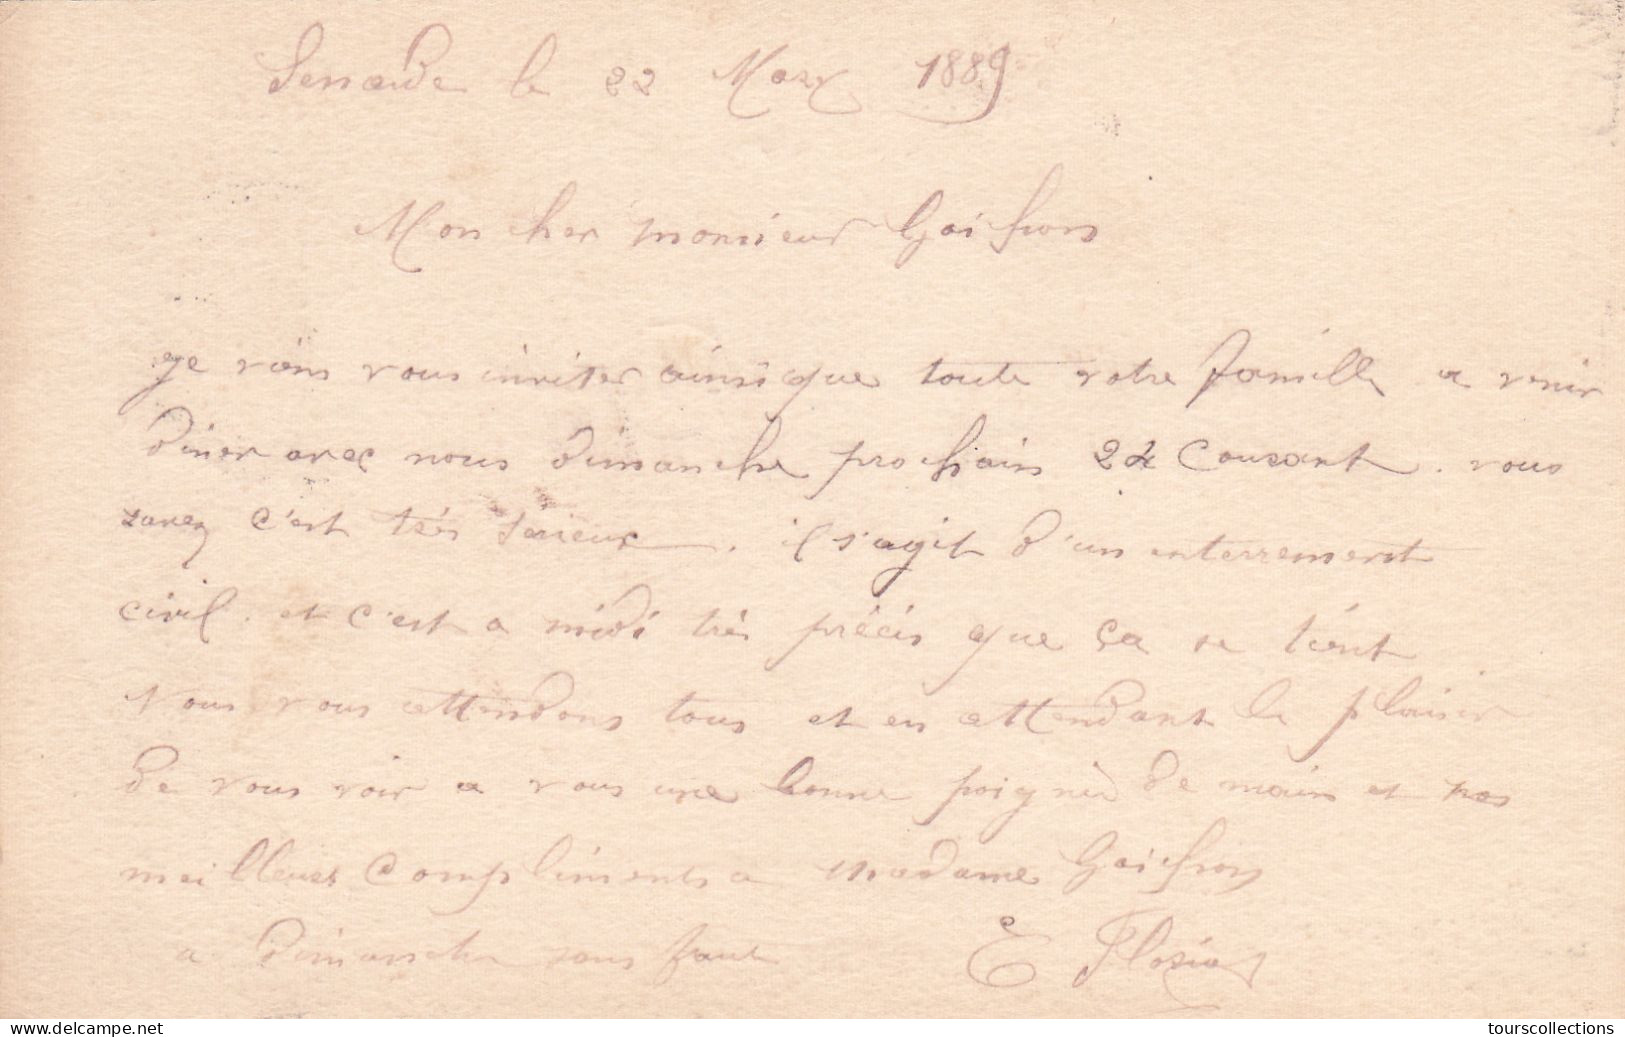 Senaide le 22 Mars 1889
Mon cher monsieur Gaichon
je viens vous inviter ainsi que toute votre famille a venir
diner avec nous dimanche prochain 24 Courant. vous
savez c'est très sérieux. il s'agit d'un enterrement
civil. et c'est a midi très précis que ça se tient
Nous vous attendons tous et en attendant le plaisir
de vous voir a vous une bonne poignée de main et nos
meilleurs compliments a madame Gaichon
a Dimanche sans faute E Floriot
delcampe.net
tourscollections